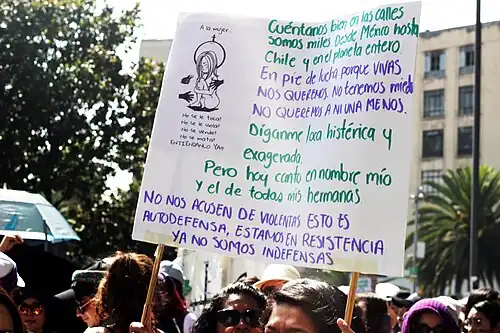 A la mujer...
No se le toca!
No se le viola!
No se vende!
No se mata!
ENTIENDANLO YA!!
Cuéntanos bien en las calles
Somos miles Desde México hasta
Chile y en el planeta entero
En pie de lucha porque VIVAS
NOS QUEREMOS. No tenemos miedo
NO QUEREMOS A NI UNA MENOS.
Díganme loca histérica y
exagerada.
Pero hoy canto en nombre mío
y el de todas mis hermanas
NO NOS ACUSEN DE VIOLENTAS ESTO ES
AUTODEFENSA, ESTAMOS EN RESISTENCIA
YA NO SOMOS INDEFENSAS